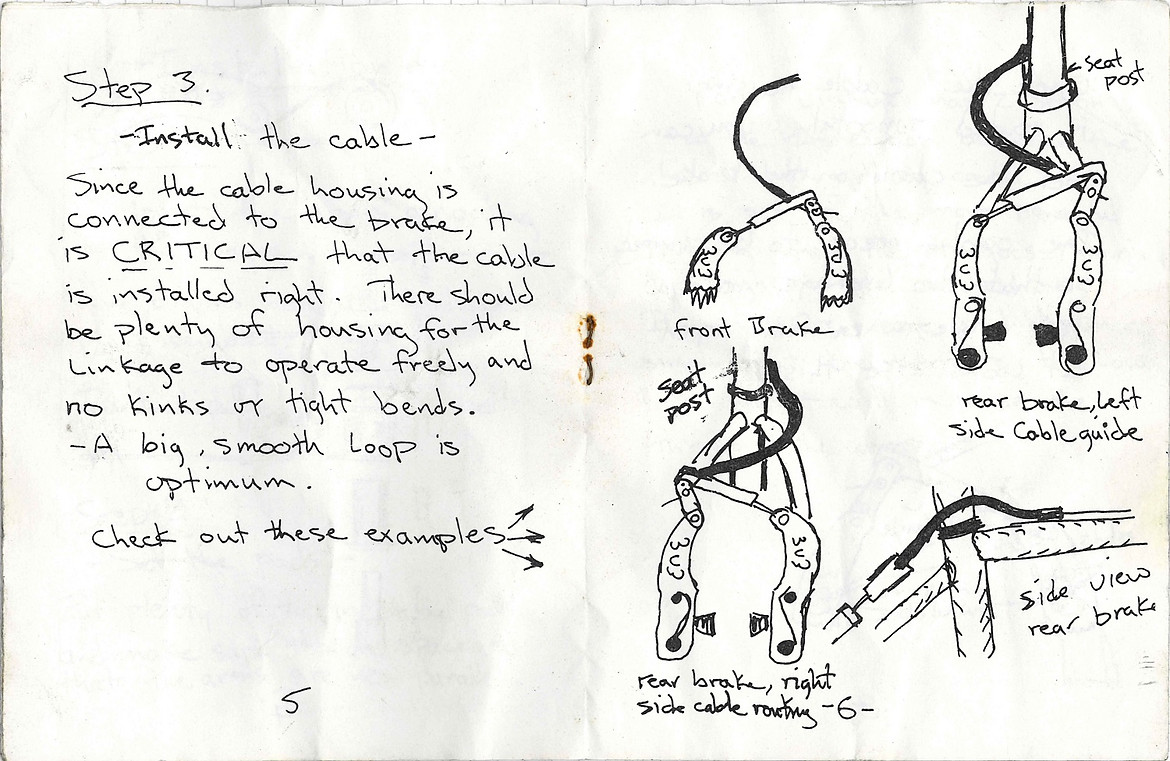 Step 3.
-Install the cable-
Since the cable housing is
connected to the brake, it
is CRITICAL that the cable
is installed right. There should
be plenty of housing for the
Linkage to operate freely and
no kinks or tight bends.
-A big, smooth Loop is
optimum.
Check out these examples
5
seat
post
3V3
3V3
front Brake
3V3
3V3
rear brake, left
side Cable guide
seat
post
3V3
3V3
rear brake, right
side cable routing -6-
side view
rear brake